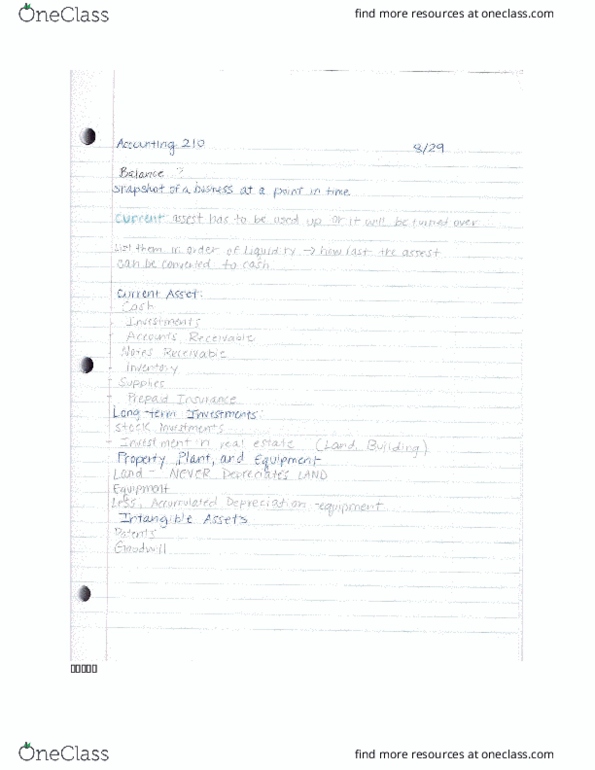 OneClass
find more resources at oneclass.com
Accounting 210
8/29
Balance ?
snapshot of a business at a point in time
current assest has to be used up or it will be turned over
List them in order of liquidity → how fast the assest
can be converted to cash
Current Asset:
Cash
- Investments
- Accounts Receivable
- Notes Receivable
- inventory
- Supplies
- Prepaid Insurance
Long-term Investments:
Stock Investments
- Investment in real estate (Land, Building)
Property, Plant, and Equipment
Land - NEVER Depreciates LAND
Equipment
Less, Accumulated Depreciation -equipment
Intangible Assets
Patents
Goodwill
OneClass
find more resources at oneclass.com